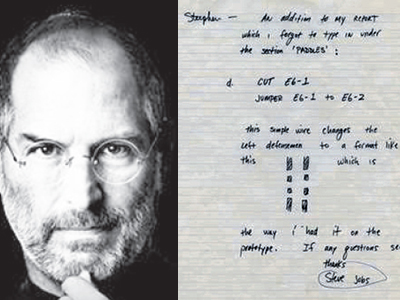 Stephen — An addition to my report
which i forgot to type in under
the section 'PADDLES' :
d. CUT E6-1
JUMPER E6-1 to E6-2
this simple wire changes the
left defensemen to a format like
this which is
the way i had it on the
prototype. If any questions se
thanks
Steve jobs